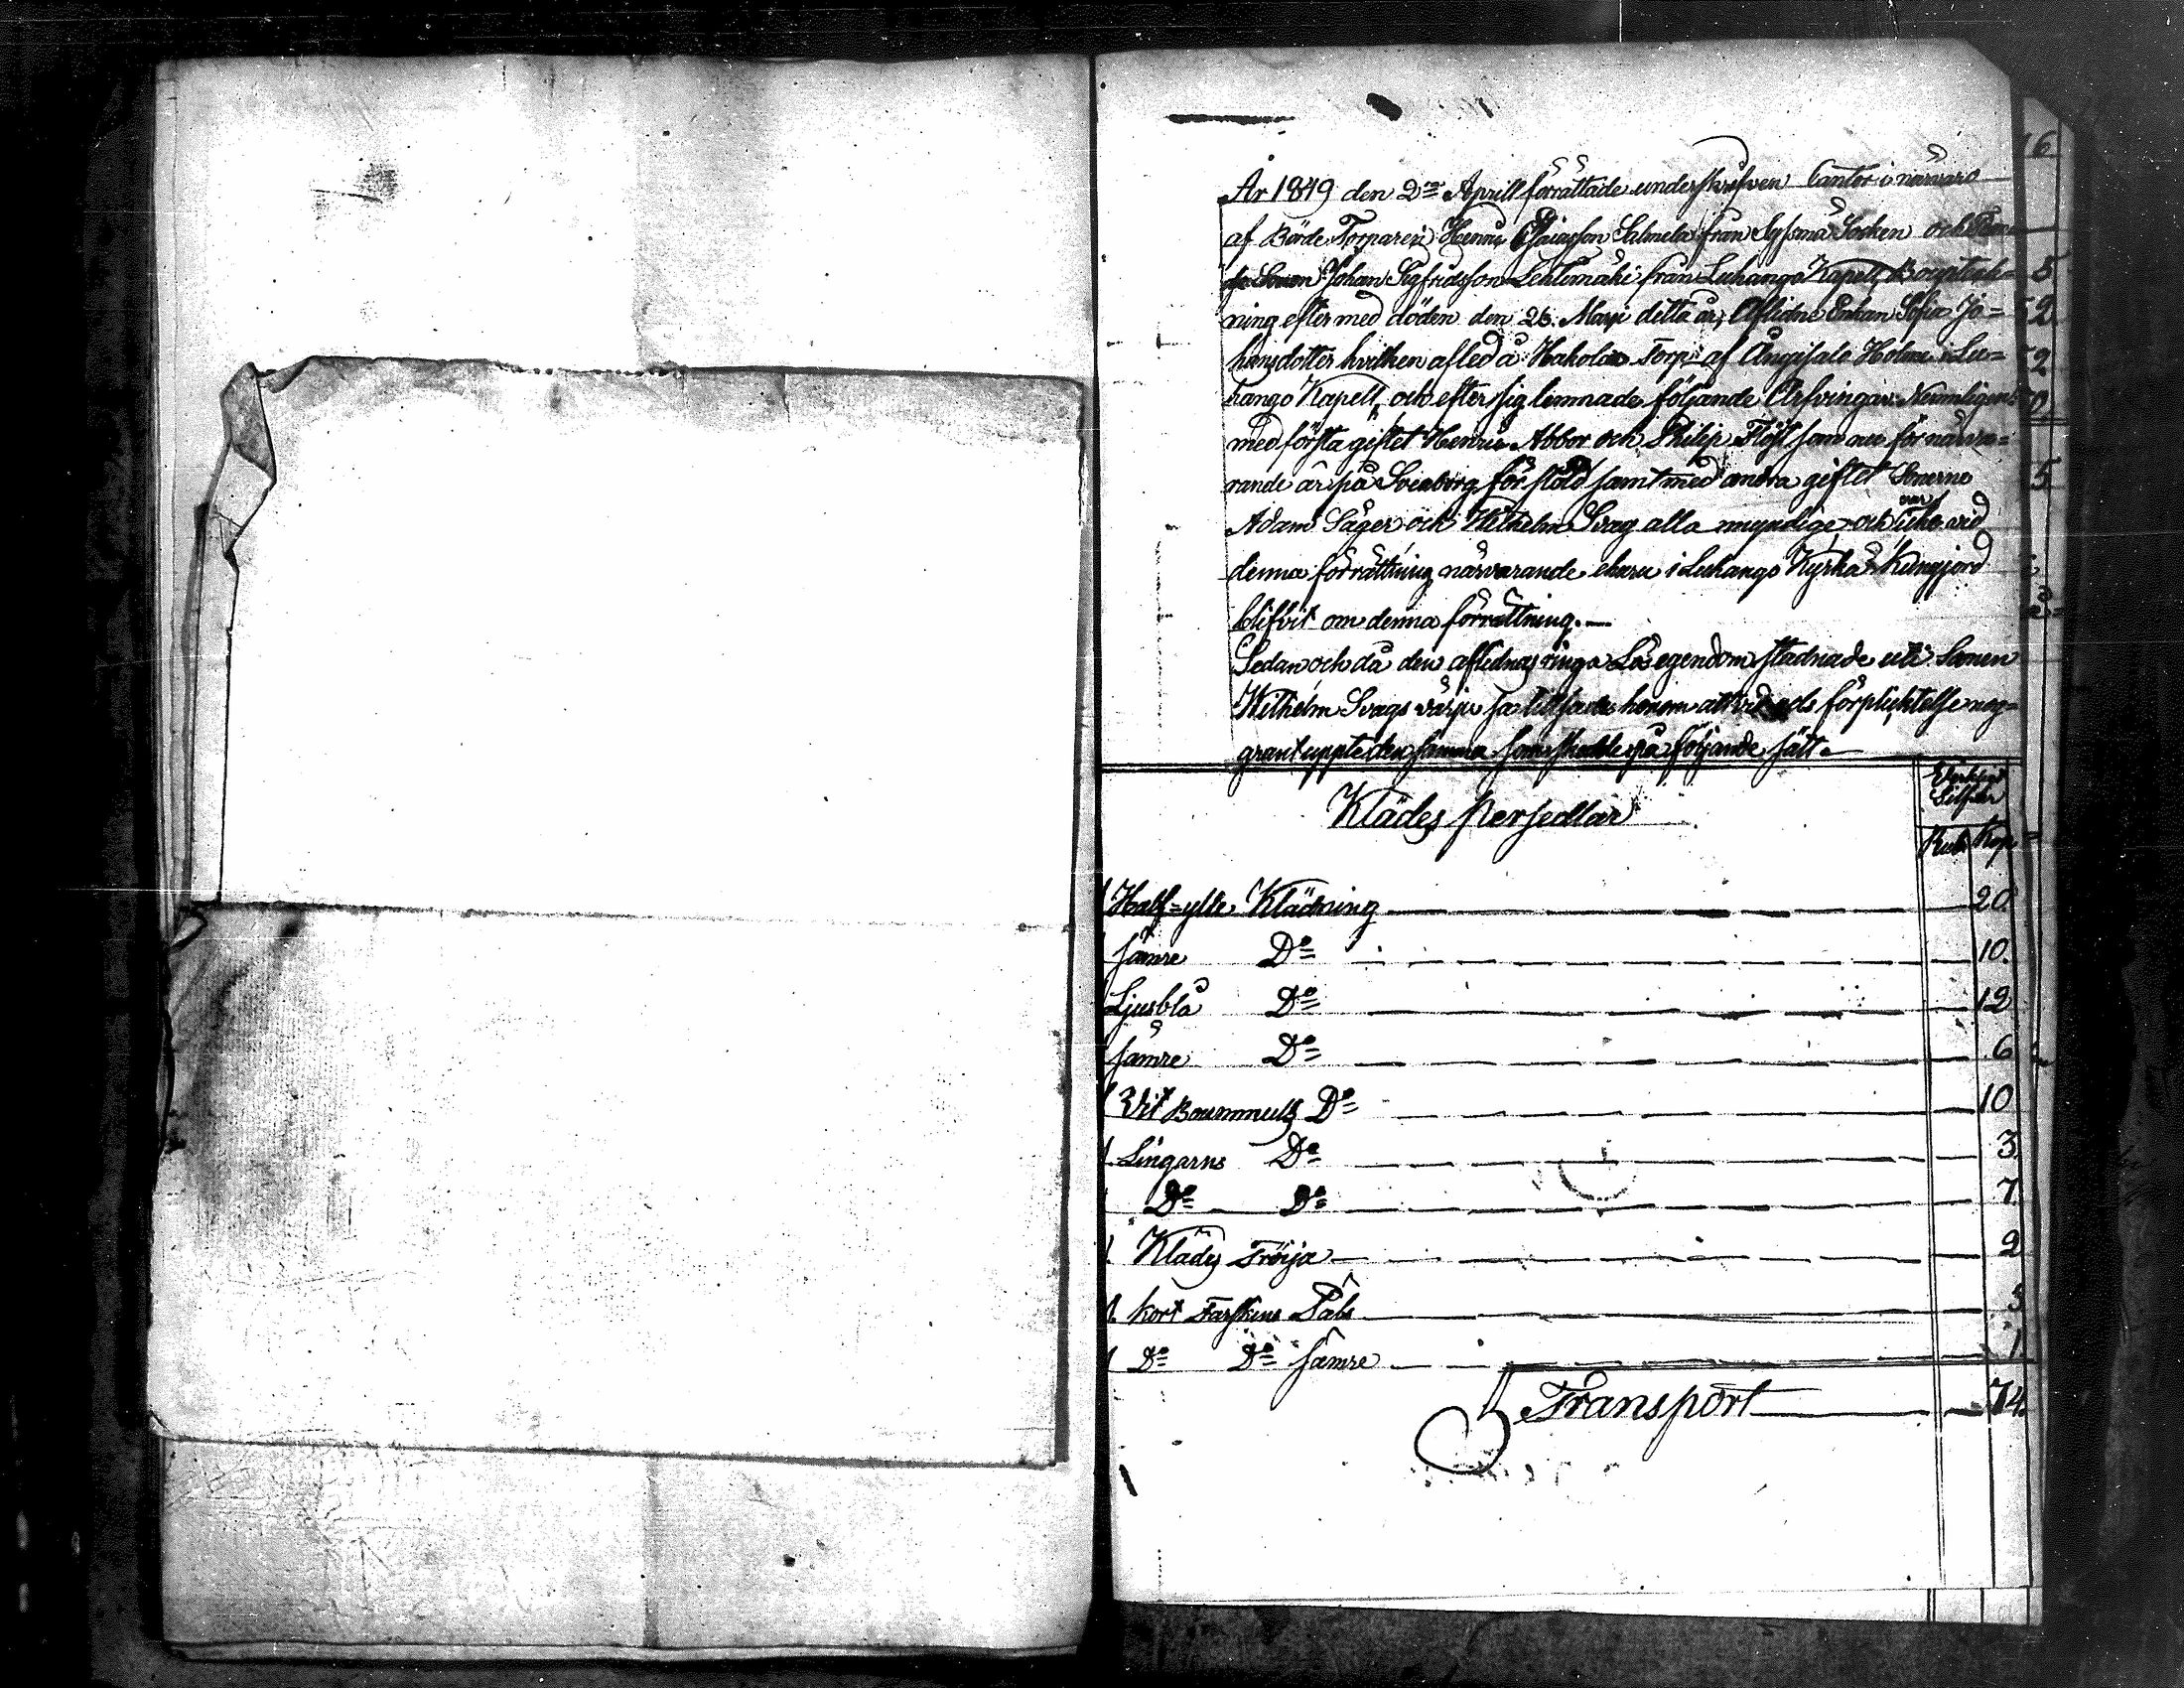 År 1849 den 2= Aprill förrättade underskrefven Cantor i närvaro
af Börde Torparen Henric Esaiasson Salmela från Sysmä Socken och
Sonen Johan Sigfridsson Lehtimäki från Luhango Kapell, Bouptek-
ning efter med döden den 26. Marji detta år, Aflidne Enkan Sofia Jo=
hansdotter hvilken afled å Hakola Torp af Ångisalo Holme i Lu=
hango Kapell, och efter sig lemnade följande Arfvingar: Nemligen
med första giftet Henric Abbor och Philip Flöjt som nu för närva=
rande är på Sveaborg för stöld samt med andra giftet Sönerne
Adam Säger och Wilhelm Svag alla myndige, och icke vid
denna förrättning närvarande ehuru i Luhango Kyrka Kungjord
blifvit om denna förrättning.—
Sedan och då den aflidnas ringa Lösegendom stadnade uti Sonen
Wilhelm Svags värjo så tillsades honom att vid eds förplicktelse nog=
grant uppte den samma som skedde på följande sätt.—
Silfver
Klädes persedlar
Rub. Kop.
1 Half=ylle Klädning 20.
1 sämre D= 10.
1 Ljusblå D= 12
1 sämre D= 6
1 Vit Boummulls D= 10
1. Lingarns D= 3.
1 D= D= 7.
1. Klädes Tröija 2
1. kort Fårskins Päls 3
1 D= D= sämre 1.
Transport 74.